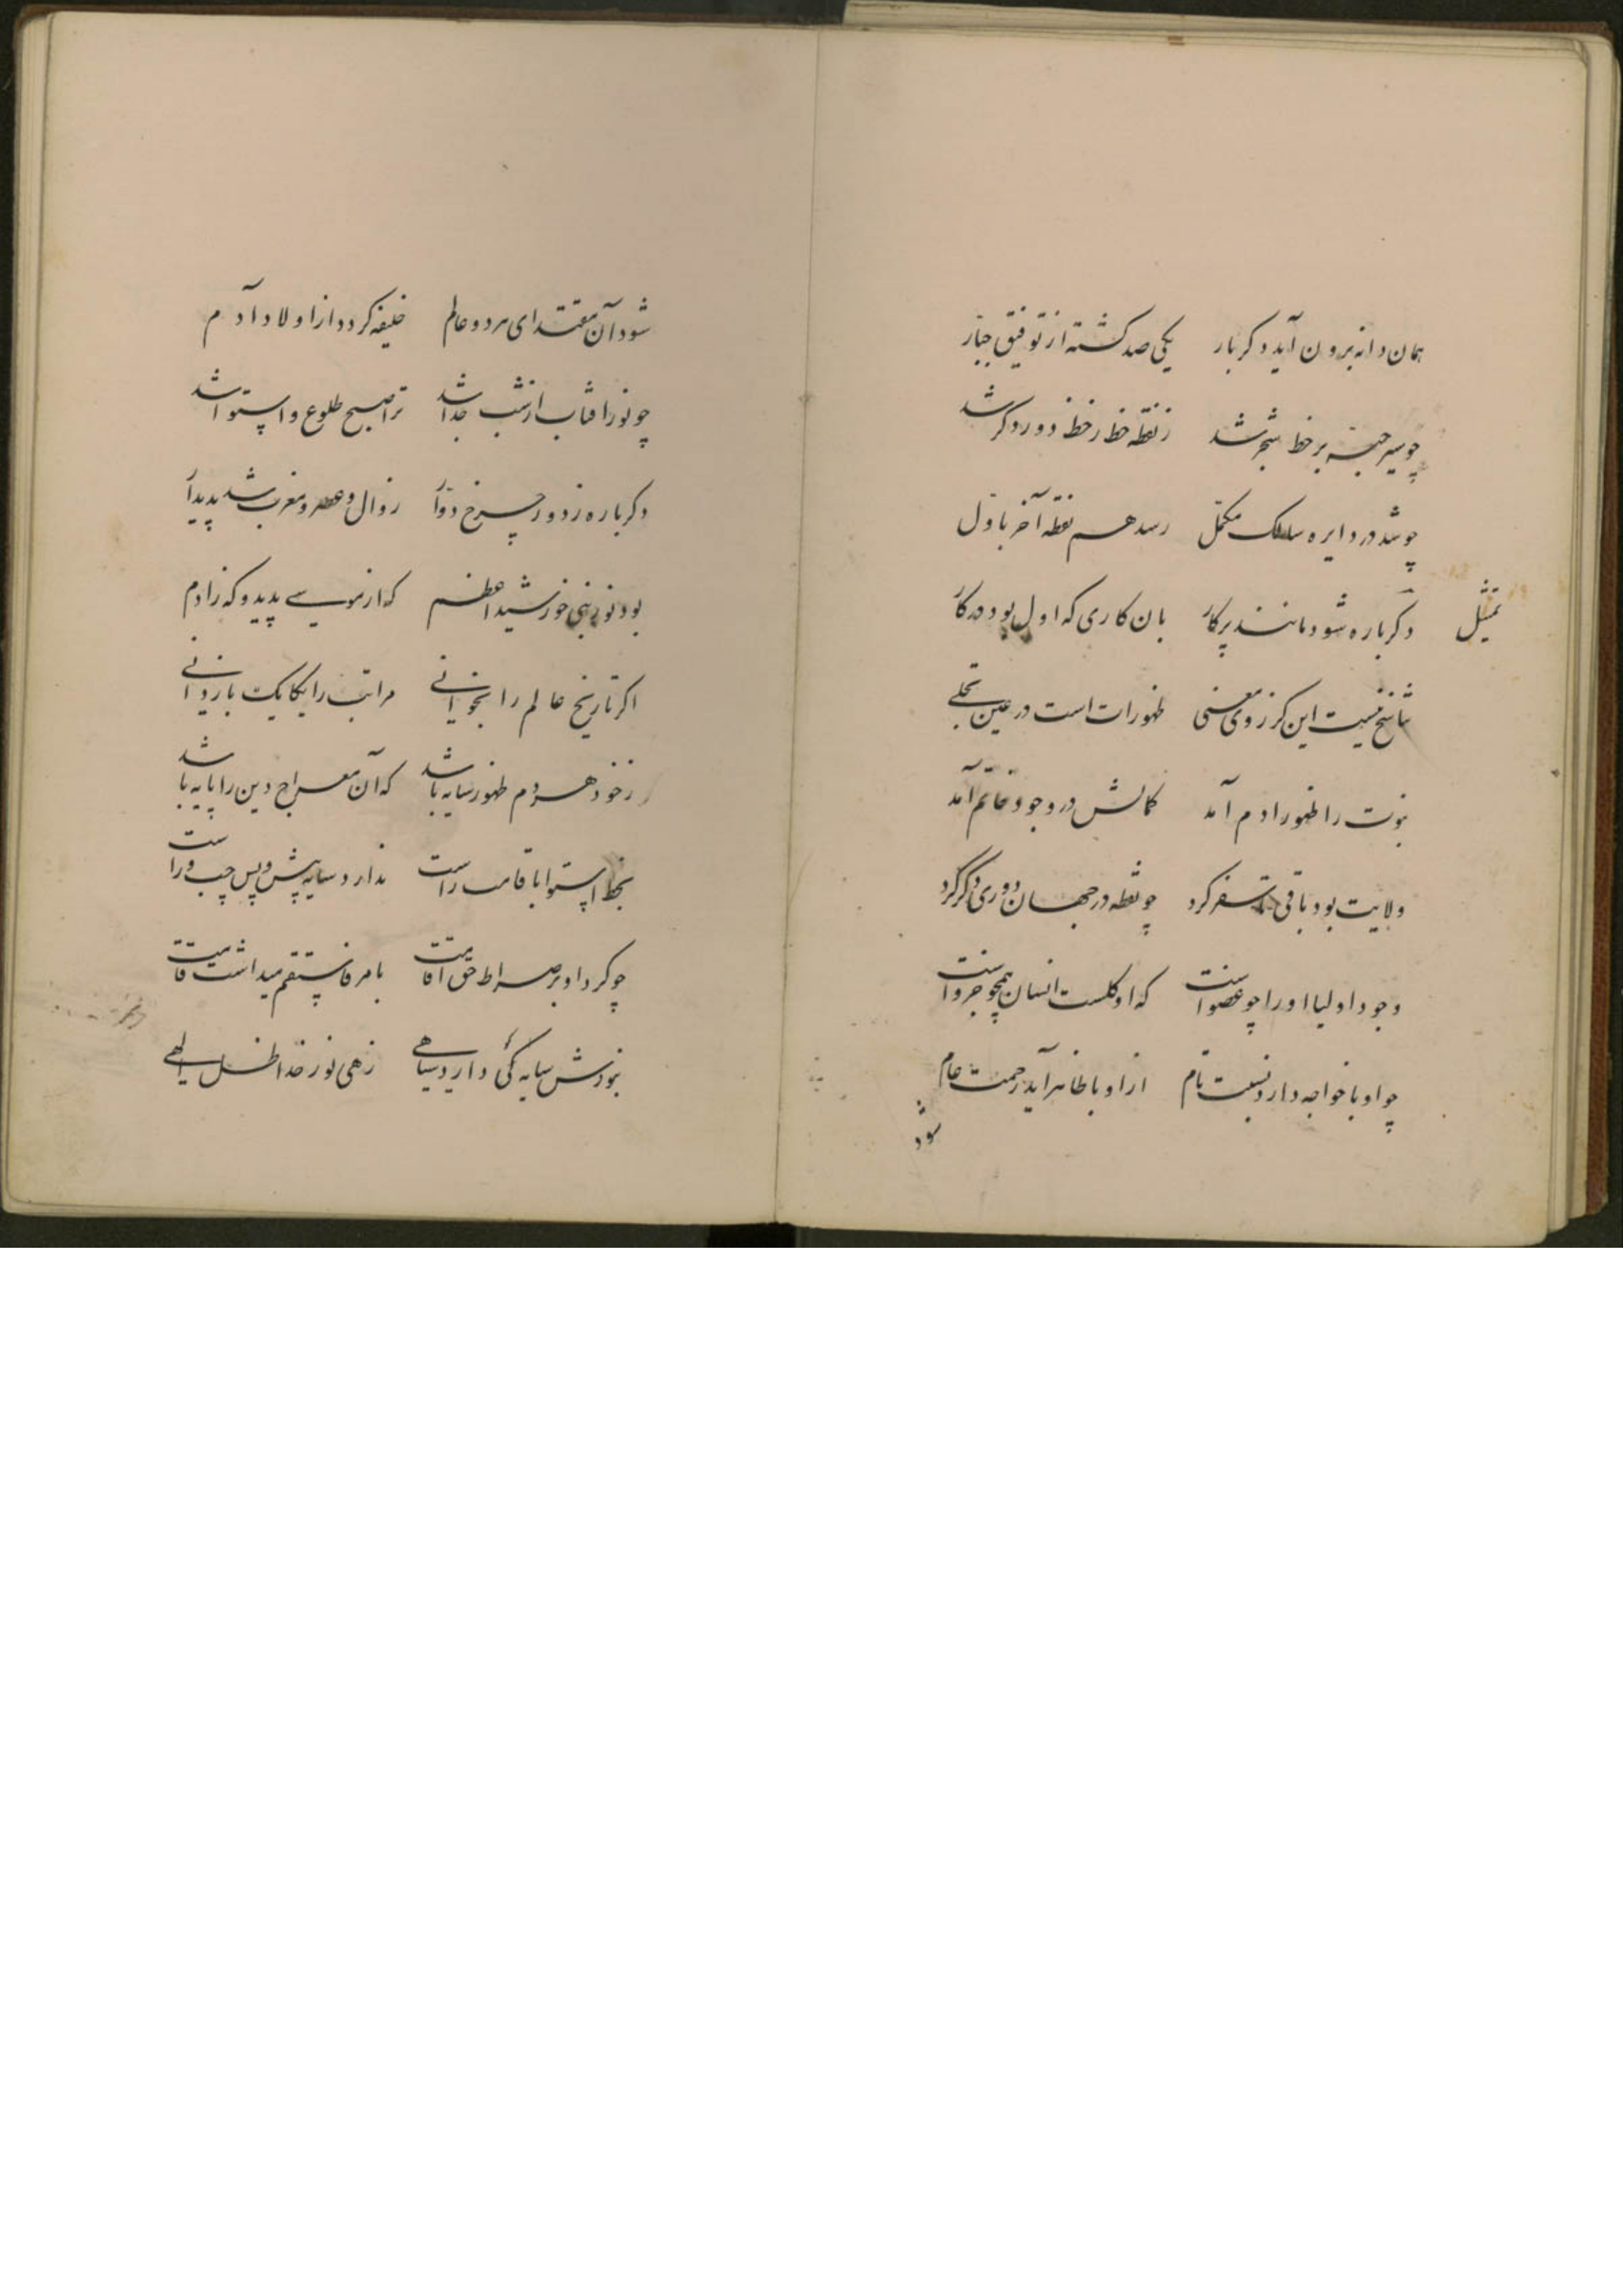 همان دانه برون آید دگر بار یکی صد گشته از توفیق جبار
چو سیر حبه بر خط شجر شد ز نقطه خط ز خط دوری دگر شد
چو شد در دایره سالک مکمل رسد هم نقطه آخر باول
تمثیل
دگرباره شود مانند پرکار بان کاری که اول بود در کار
تناسخ نیست این کز روی معنی ظهورات است در عین تجلی
نبوت را ظهور ادم آمد کمالش در وجود خاتم آمد
ولایت بود باقی تا سفر کرد چو نقطه در جهان دوری دگر کرد
وجود اولیا او را چو عضو است که او کلست انسان همچو جزو است
چو او با خواجه دارد نسبت تام ازاو با ظاهر آید رحمت عام
شود
شود آن مقتدای هر دو عالم خلیفه کردد از اولاد آدم
چو نور افتاب از شب جدا شد ترا صبح طلوع و استوا شد
دکرباره ز دور چرخ دوار زوال و عصر و مغرب شد پدیدار
بود نور نبی خورشید اعظم که از موسی پدید و که ز ادم
اکر تاریخ عالم را بخوانی مراتب را یکایک باز دانی
ز خود هر دم ظهور سایه باشد که آن معراج دین را پایه باشد
بخط استوا با قامت راست ندارد سایه پیش و پس چپ و راست
چو کرد او بر صراط حق اقامت بامر فاستقم میداشت قامت
نبودش سایه کی دارد سیاهی زهی نور خدا ظل الهی